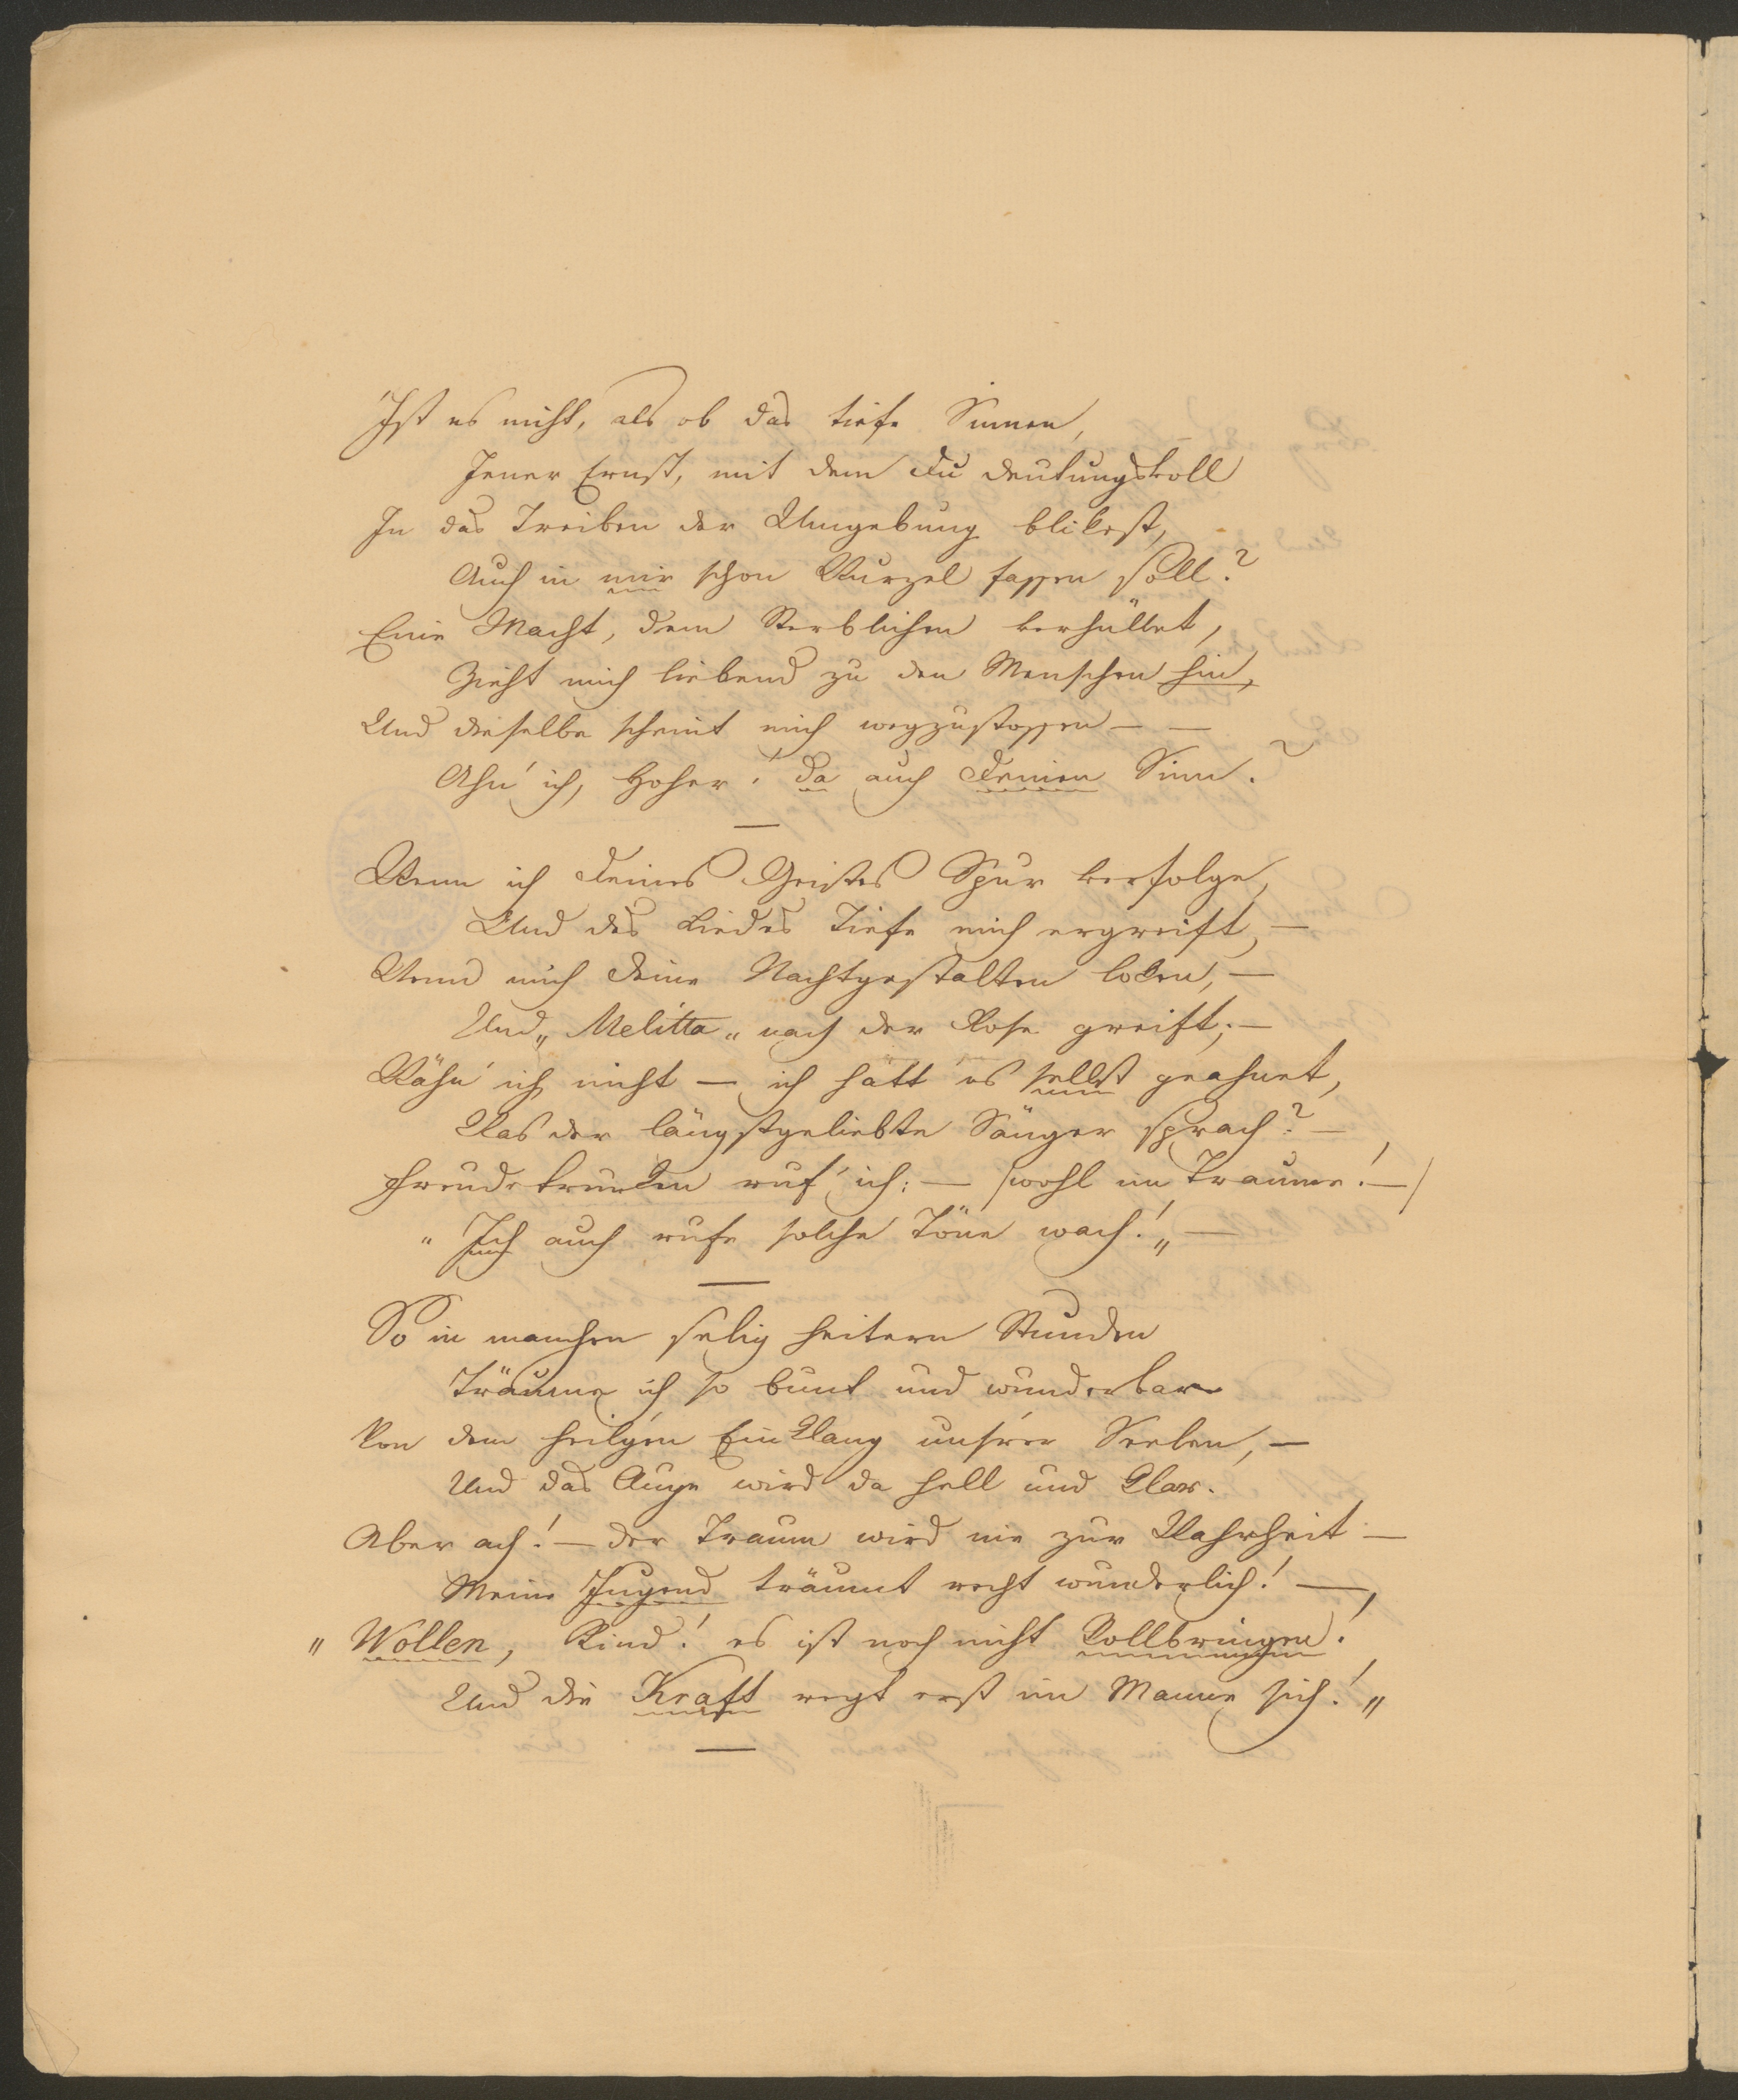 Ist es nicht, als ob das tiefe Sinnen,
Jener Ernst, mit dem Du deutungsvoll
In das Treiben der Umgebung blikest,
Auch in mir schon Wurzel fassen soll?
Eine Macht, dem Sterblichen verhüllet,
Zieht mich liebend zu den Menschen hin,
Und dieselbe scheint mich wegzustossen — —
Ahn' ich, Hoher! da auch Deinen Sinn?
—
Wenn ich Deines Geistes Spur verfolge,
Und des Liedes Tiefe mich ergreift, —
Wenn mich Deine Nachtgestalten loken, —
Und „Melitta„ nach der Rose greift; —
Wähn' ich nicht — ich hätt' es selbst geahnet,
Was der längstgeliebte Sänger sprach? —
Freudetrunken ruf' ich: — /wohl im Traume! —/
„Ich auch rufe solche Töne wach!„ —
—
So in manchen selig heitern Stunden
Träume ich so bunt und wunderbar
Von dem heil'gen Einklang uns'rer Seelen, —
Und das Auge wird da hell und klar.
Aber ach! — der Traum wird nie zur Wahrheit —
Meine Jugend träumt recht wunderlich! —,
„Wollen, Kind! es ist noch nicht Vollbringen!
Und die Kraft regt erst im Manne sich!„
—